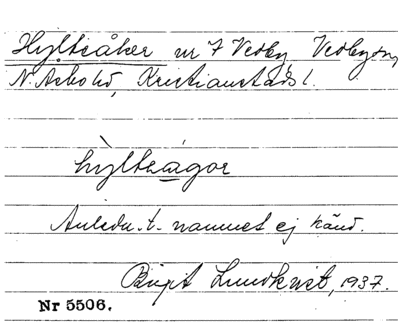 Hyltåker nr 7 Vedby, Vedby sn,
N. Åsbo hd, Kristianstads l.
hỳltea̱gor
Anledn. t. namnet ej känd.
Birgit Lundkvist, 1937.
Nr 5506.